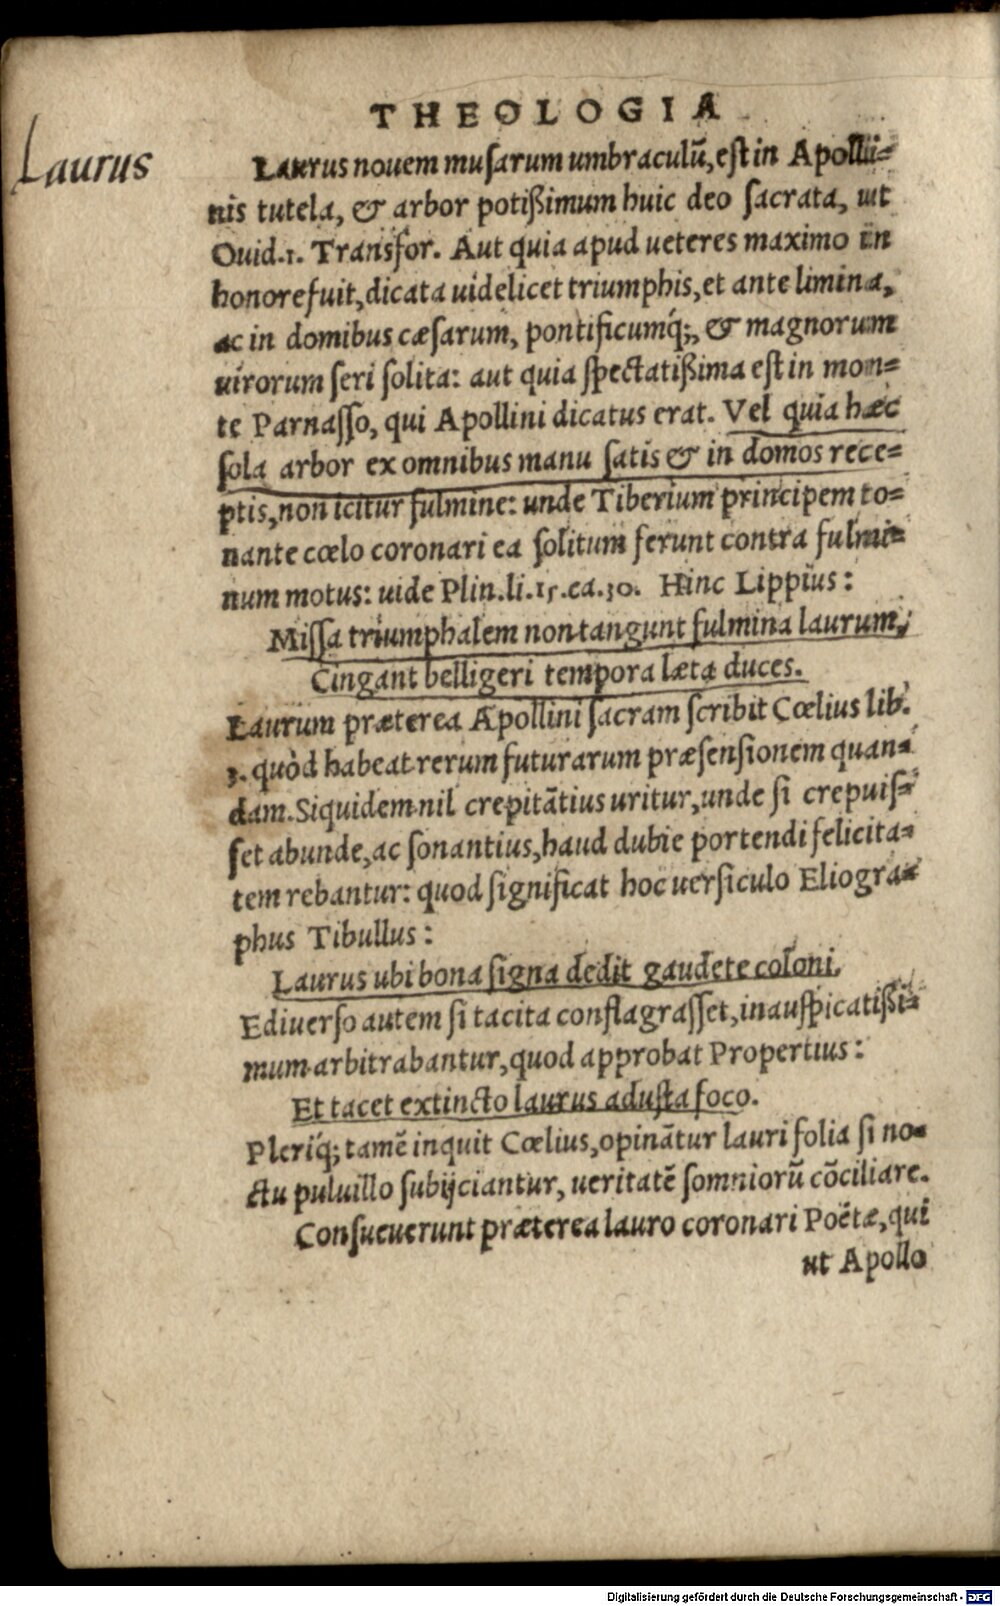 THEOLOGIA
Laurus
Laurus nouem musarum umbraculũ, est in Apolli-
nis tutela, & arbor potißimum huic deo sacrata, ut
Ouid.1. Transfor. Aut quia apud ueteres maximo in
honore fuit, dicata uidelicet triumphis, et ante limina,
ac in domibus cæsarum, pontificumq́;, & magnorum
uirorum seri solita: aut quia spectatißima est in mon-
te Parnasso, qui Apollini dicatus erat. Vel quia hæc
sola arbor ex omnibus manu satis & in domos rece-
ptis, non icitur fulmine: unde Tiberium principem to-
nante cœlo coronari ea solitum ferunt contra fulmi-
num motus: uide Plin.li.15.ca.30. Hinc Lippius:
Missa triumphalem non tangunt fulmina laurum,
Cingant belligeri tempora læta duces.
Laurum præterea Apollini sacram scribit Cœlius lib.
3. quòd habeat rerum futurarum præsensionem quan-
dam. Siquidem nil crepitãtius uritur, unde si crepuis-
set abunde, ac sonantius, haud dubie portendi felicita-
tem rebantur: quod significat hoc uersiculo Eliogra-
phus Tibullus:
Laurus ubi bona signa dedit gaudete coloni.
Ediuerso autem si tacita conflagrasset, inauspicatißi-
mum arbitrabantur, quod approbat Propertius:
Et tacet extincto laurus adusta foco.
Pleriq́; tamẽ inquit Cœlius, opinãtur lauri folia si no-
ctu puluillo subijciantur, ueritatẽ somniorũ cõciliare.
Consueuerunt præterea lauro coronari Poëtæ, qui
ut Apollo
Digitalisierung gefördert durch die Deutsche Forschungsgemeinschaft - DFG